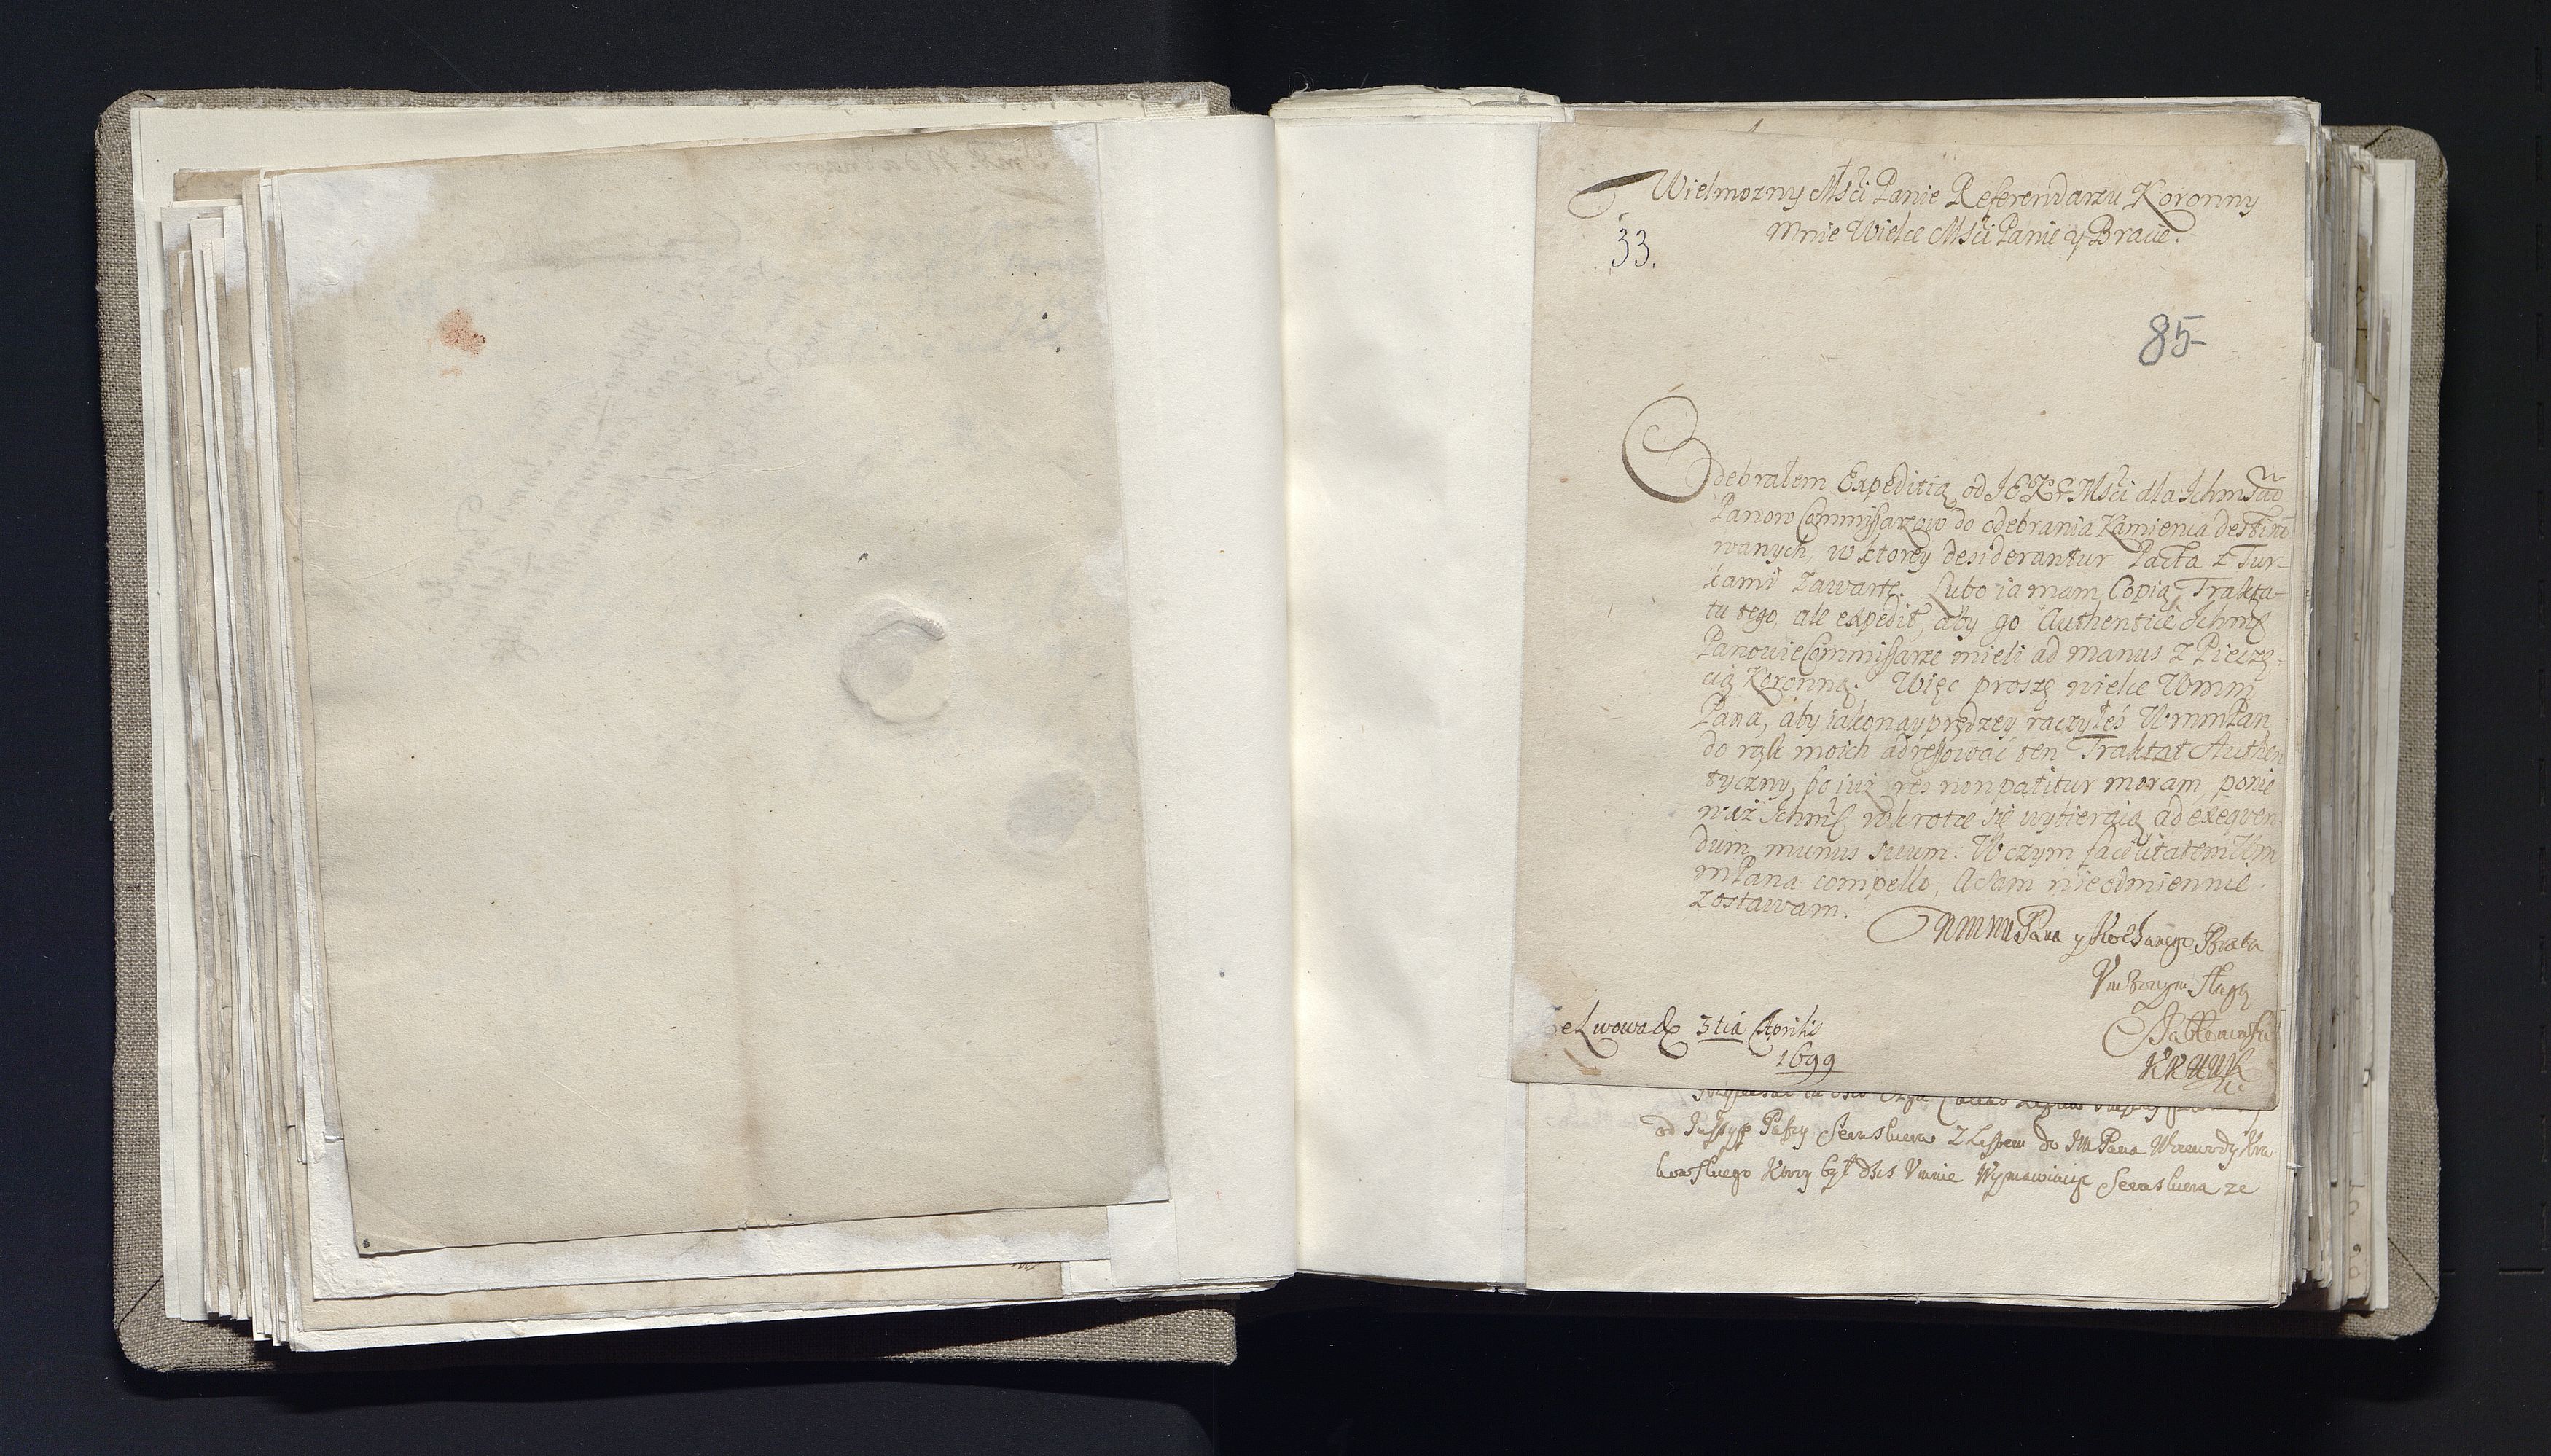 Wielmozny Msci Panie Referendarzu Koronny
Mnie Wielce Msci Panie y Bracie.
33.
85
Odebrałem Expeditią od JEKR Msci dla Ichm
Panow Commissarzow do odebrania Kamienia destino
wanych, w ktorey desiderantur Pacta z Tur-
kami zawarte. Lubo ia mam Copią Trakta-
tu tego, ale expedit, aby go Authentice Ichm
Panowie Commissarze mieli ad manus z Pieczę-
cią Koronną. Więc proszę wielce Wmm
Pana, aby iakonayprędzey raczyłeś WmmPan
do rąk moich adressować ten Traktat Authen
tyczny, bo iuż res non patitur moram, ponie
waż Ichm wkrotce się wybieraią ad exequen
dum munus suum. W czym facilitatem Wm
mPana compello, A sam nieodmiennie
zostawam.
WMM Pana y Kochanego Brata
Vnizonym sługą
Jabłonowski
KKHWK
Ze Lwowa d 3tia Aprilis
1699
od Jussuff Paszy Seraskiera z Listem do JM Pana Woiewody Kra
kowskiego Ktory był dsis Vmnie Wymawiaiąc Seraskiera ze